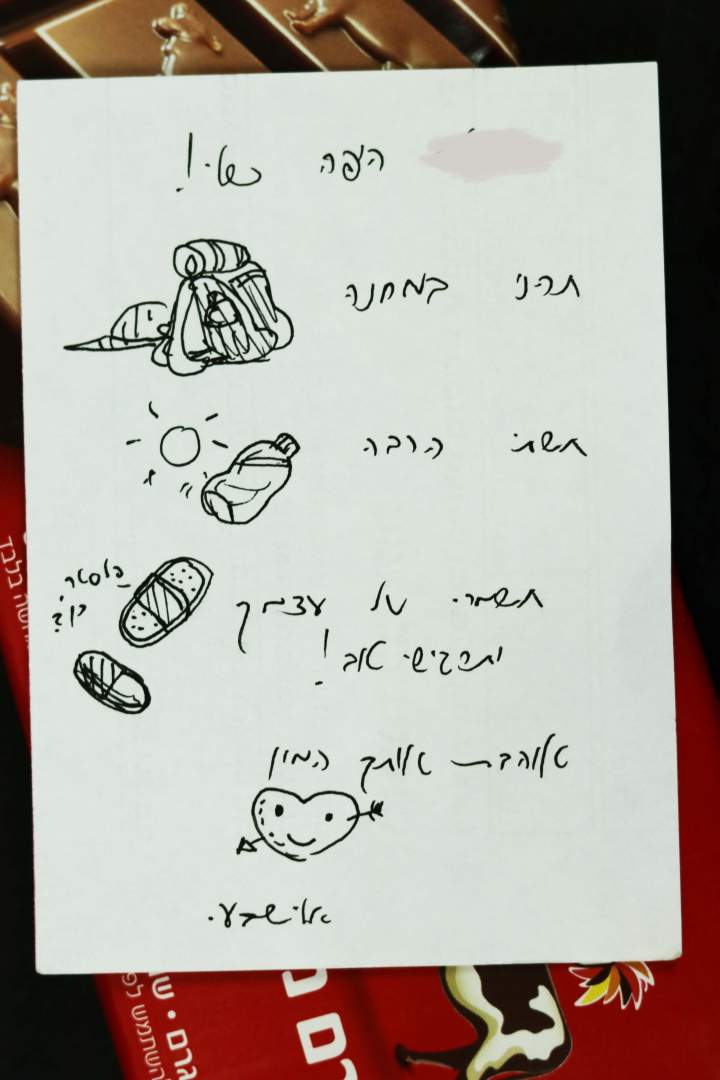 היפה שלי!
תהני במחנה
תשתי הרבה
תשמרי על עצמך
ותרגישי טוב!
פלסטר,
כן?
אוהבת אותך המון
אלישבע.